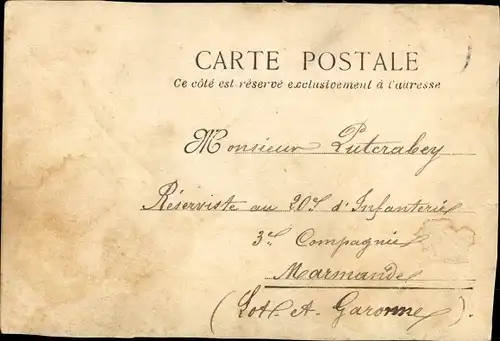 CARTE POSTALE
Ce côté est réservé exclusivement à l'adresse
Monsieur Puterabey
Réserviste au 20e d'Infanterie
3e Compagnie
Marmande
(Lot. et. Garonne).